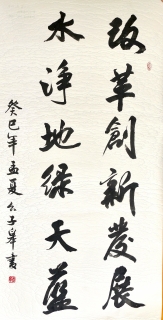 改革創新發展
水净地绿天蓝
癸巳年孟夏公子皋書